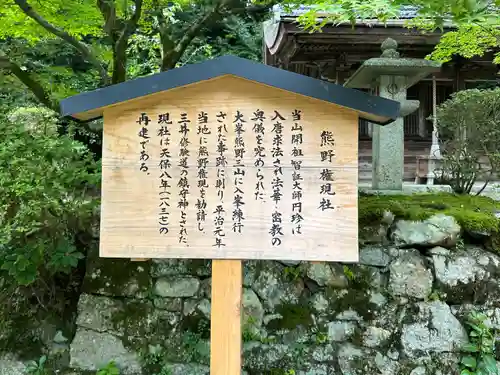 熊野権現社
当山開祖智証大師円珍は
入唐求法され法華・密教の
奥儀を究められた。
大峯熊野三山に入峯練行
された事跡に則り平治元年
当地に熊野権現を勧請し、
三井修験道の鎮守神とされた。
現社は天保八年(一八三七)の
再建である。